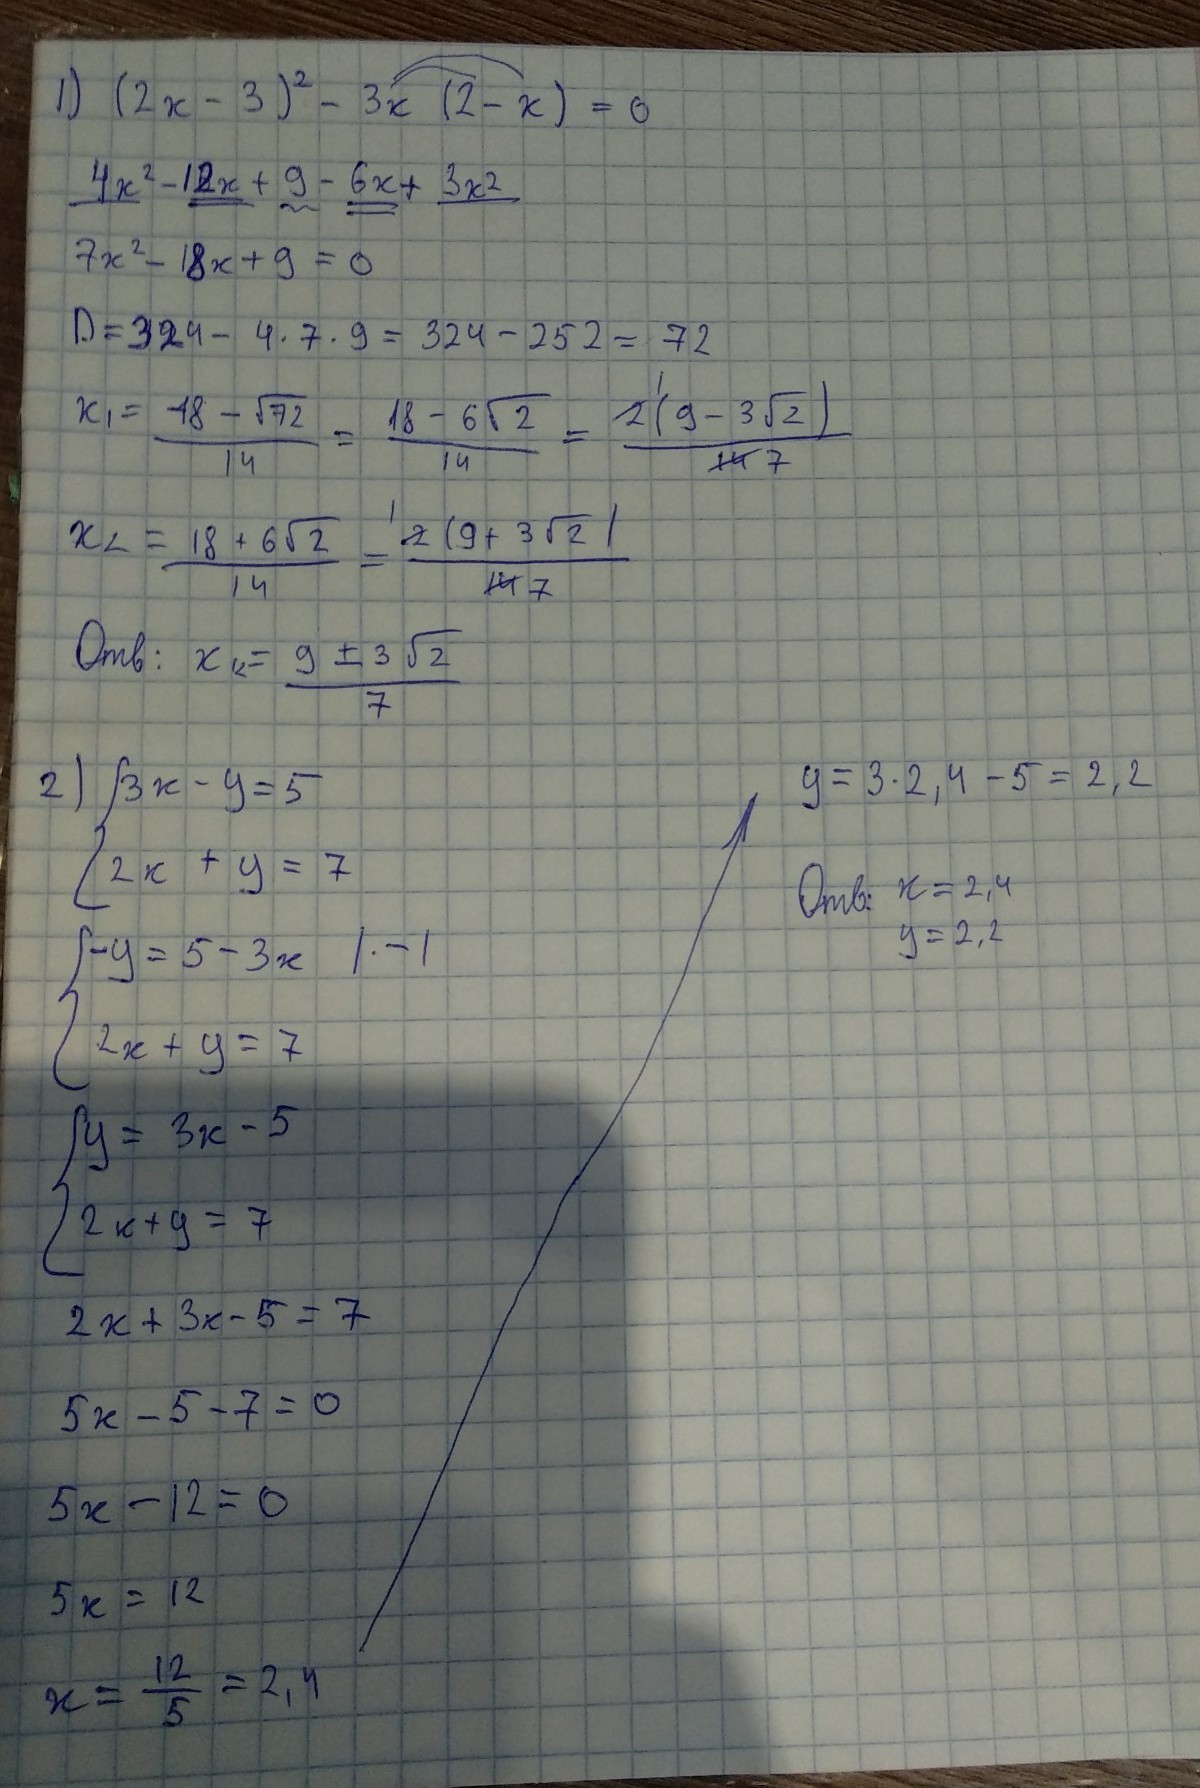 1) (2x - 3)² - 3x (2 - x) = 0
4x² - 12x + 9 - 6x + 3x²
7x² - 18x + 9 = 0
D = 324 - 4 · 7 · 9 = 324 - 252 = 72
x₁ = (18 - √72)/14 = (18 - 6√2)/14 = 2(9 - 3√2)/14 7
x₂ = (18 + 6√2)/14 = 2(9 + 3√2)/14 7
Отв: x₁₂ = (9 ± 3√2)/7
2) { 3x - y = 5
2x + y = 7
{ -y = 5 - 3x | · -1
2x + y = 7
{ y = 3x - 5
2x + y = 7
2x + 3x - 5 = 7
5x - 5 - 7 = 0
5x - 12 = 0
5x = 12
x = 12/5 = 2,4
y = 3 · 2,4 - 5 = 2,2
Отв: x = 2,4
y = 2,2